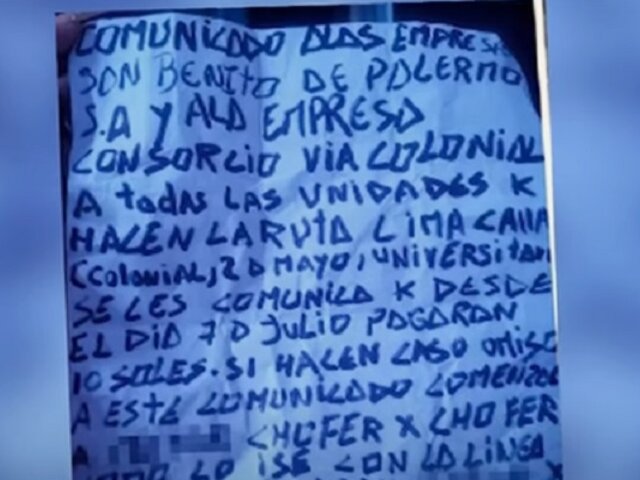 COMUNICADO ALAS EMPRESAS
SAN BENITO DE PALERMO
S.A Y ALA EMPRESA
CONSORCIO VIA COLONIAL
A todas LAS UNIDADES K
HACEN LA RUTA LIMA CALLA
(Colonial, 2 D MAYO, UNIVERSITARI
SE LES COMUNICA K DESDE
EL DIA 7 D Julio PAGARAN
10 SOLES. SI HACEN CASO OMISO
A ESTE COMUNICADO COMENZARE
A CHOFER X CHOFER
COMO LO ISE CON LA LINEA